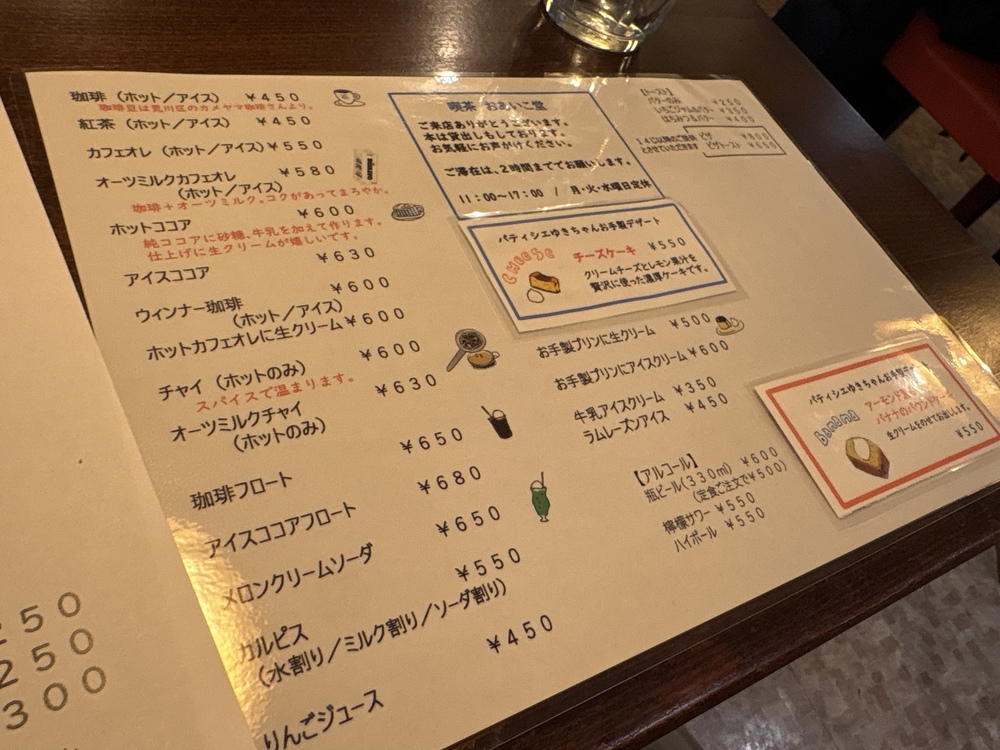 珈琲（ホット／アイス） ￥４５０
珈琲豆は荒川区のカメヤマ珈琲さんより。
紅茶（ホット／アイス） ￥４５０
カフェオレ（ホット／アイス）￥５５０
オーツミルクカフェオレ ￥５８０
（ホット／アイス）
珈琲＋オーツミルク。コクがあってまろやか。
ホットココア ￥６００
純ココアに砂糖、牛乳を加えて作ります。
仕上げに生クリームが嬉しいです。
アイスココア ￥６３０
ウィンナー珈琲 ￥６００
（ホット／アイス）
ホットカフェオレに生クリーム￥６００
チャイ（ホットのみ） ￥６００
スパイスで温まります。
オーツミルクチャイ ￥６３０
（ホットのみ）
珈琲フロート ￥６５０
アイスココアフロート ￥６８０
メロンクリームソーダ ￥６５０
カルピス ￥５５０
（水割り／ミルク割り／ソーダ割り）
りんごジュース ￥４５０
喫茶 おあいこ堂
ご来店ありがとうございます。
本は貸出しもしております。
お気軽にお声がけください。
ご滞在は、２時間まででお願いします。
１１：００～１７：００ ／ 月・火・水曜日定休
パティシエゆきちゃんお手製デザート
CHEESE
チーズケーキ ￥５５０
クリームチーズとレモン果汁を
贅沢に使った濃厚ケーキです。
お手製プリンに生クリーム ￥５００
お手製プリンにアイスクリーム￥６００
牛乳アイスクリーム ￥３５０
ラムレーズンアイス ￥４５０
【アルコール】
瓶ビール（３３０ml） ￥６００
（定食ご注文で￥５００）
檸檬サワー ￥５５０
ハイボール ￥５５０
【トースト】
バターのみ ￥２５０
いちごジャム＆バター ￥３５０
はちみつ＆バター ￥４００
１４じ以降のご提供
とさせていただきます
ピザ ￥８００
ピザトースト ￥６５０
パティシエゆきちゃんお手製デ
BANANA
アーモンド
バナナのパウンドケーキ
生クリームをのせてお出しします。
￥５５０
５０
２５０
３００